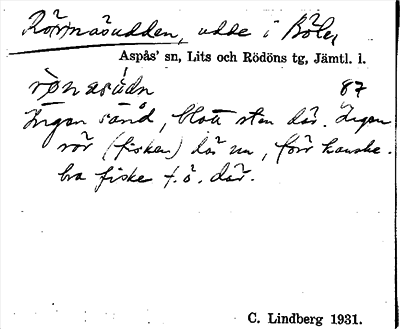 Rörnäsudden, udde i Böle,
Aspås' sn, Lits och Rödöns tg, Jämtl. l.
87
Ingen sånd, blott sten där. Ingen
rör (fisken) där nu, förr kanske
bra fiske f. ö. där.
C. Lindberg 1931.